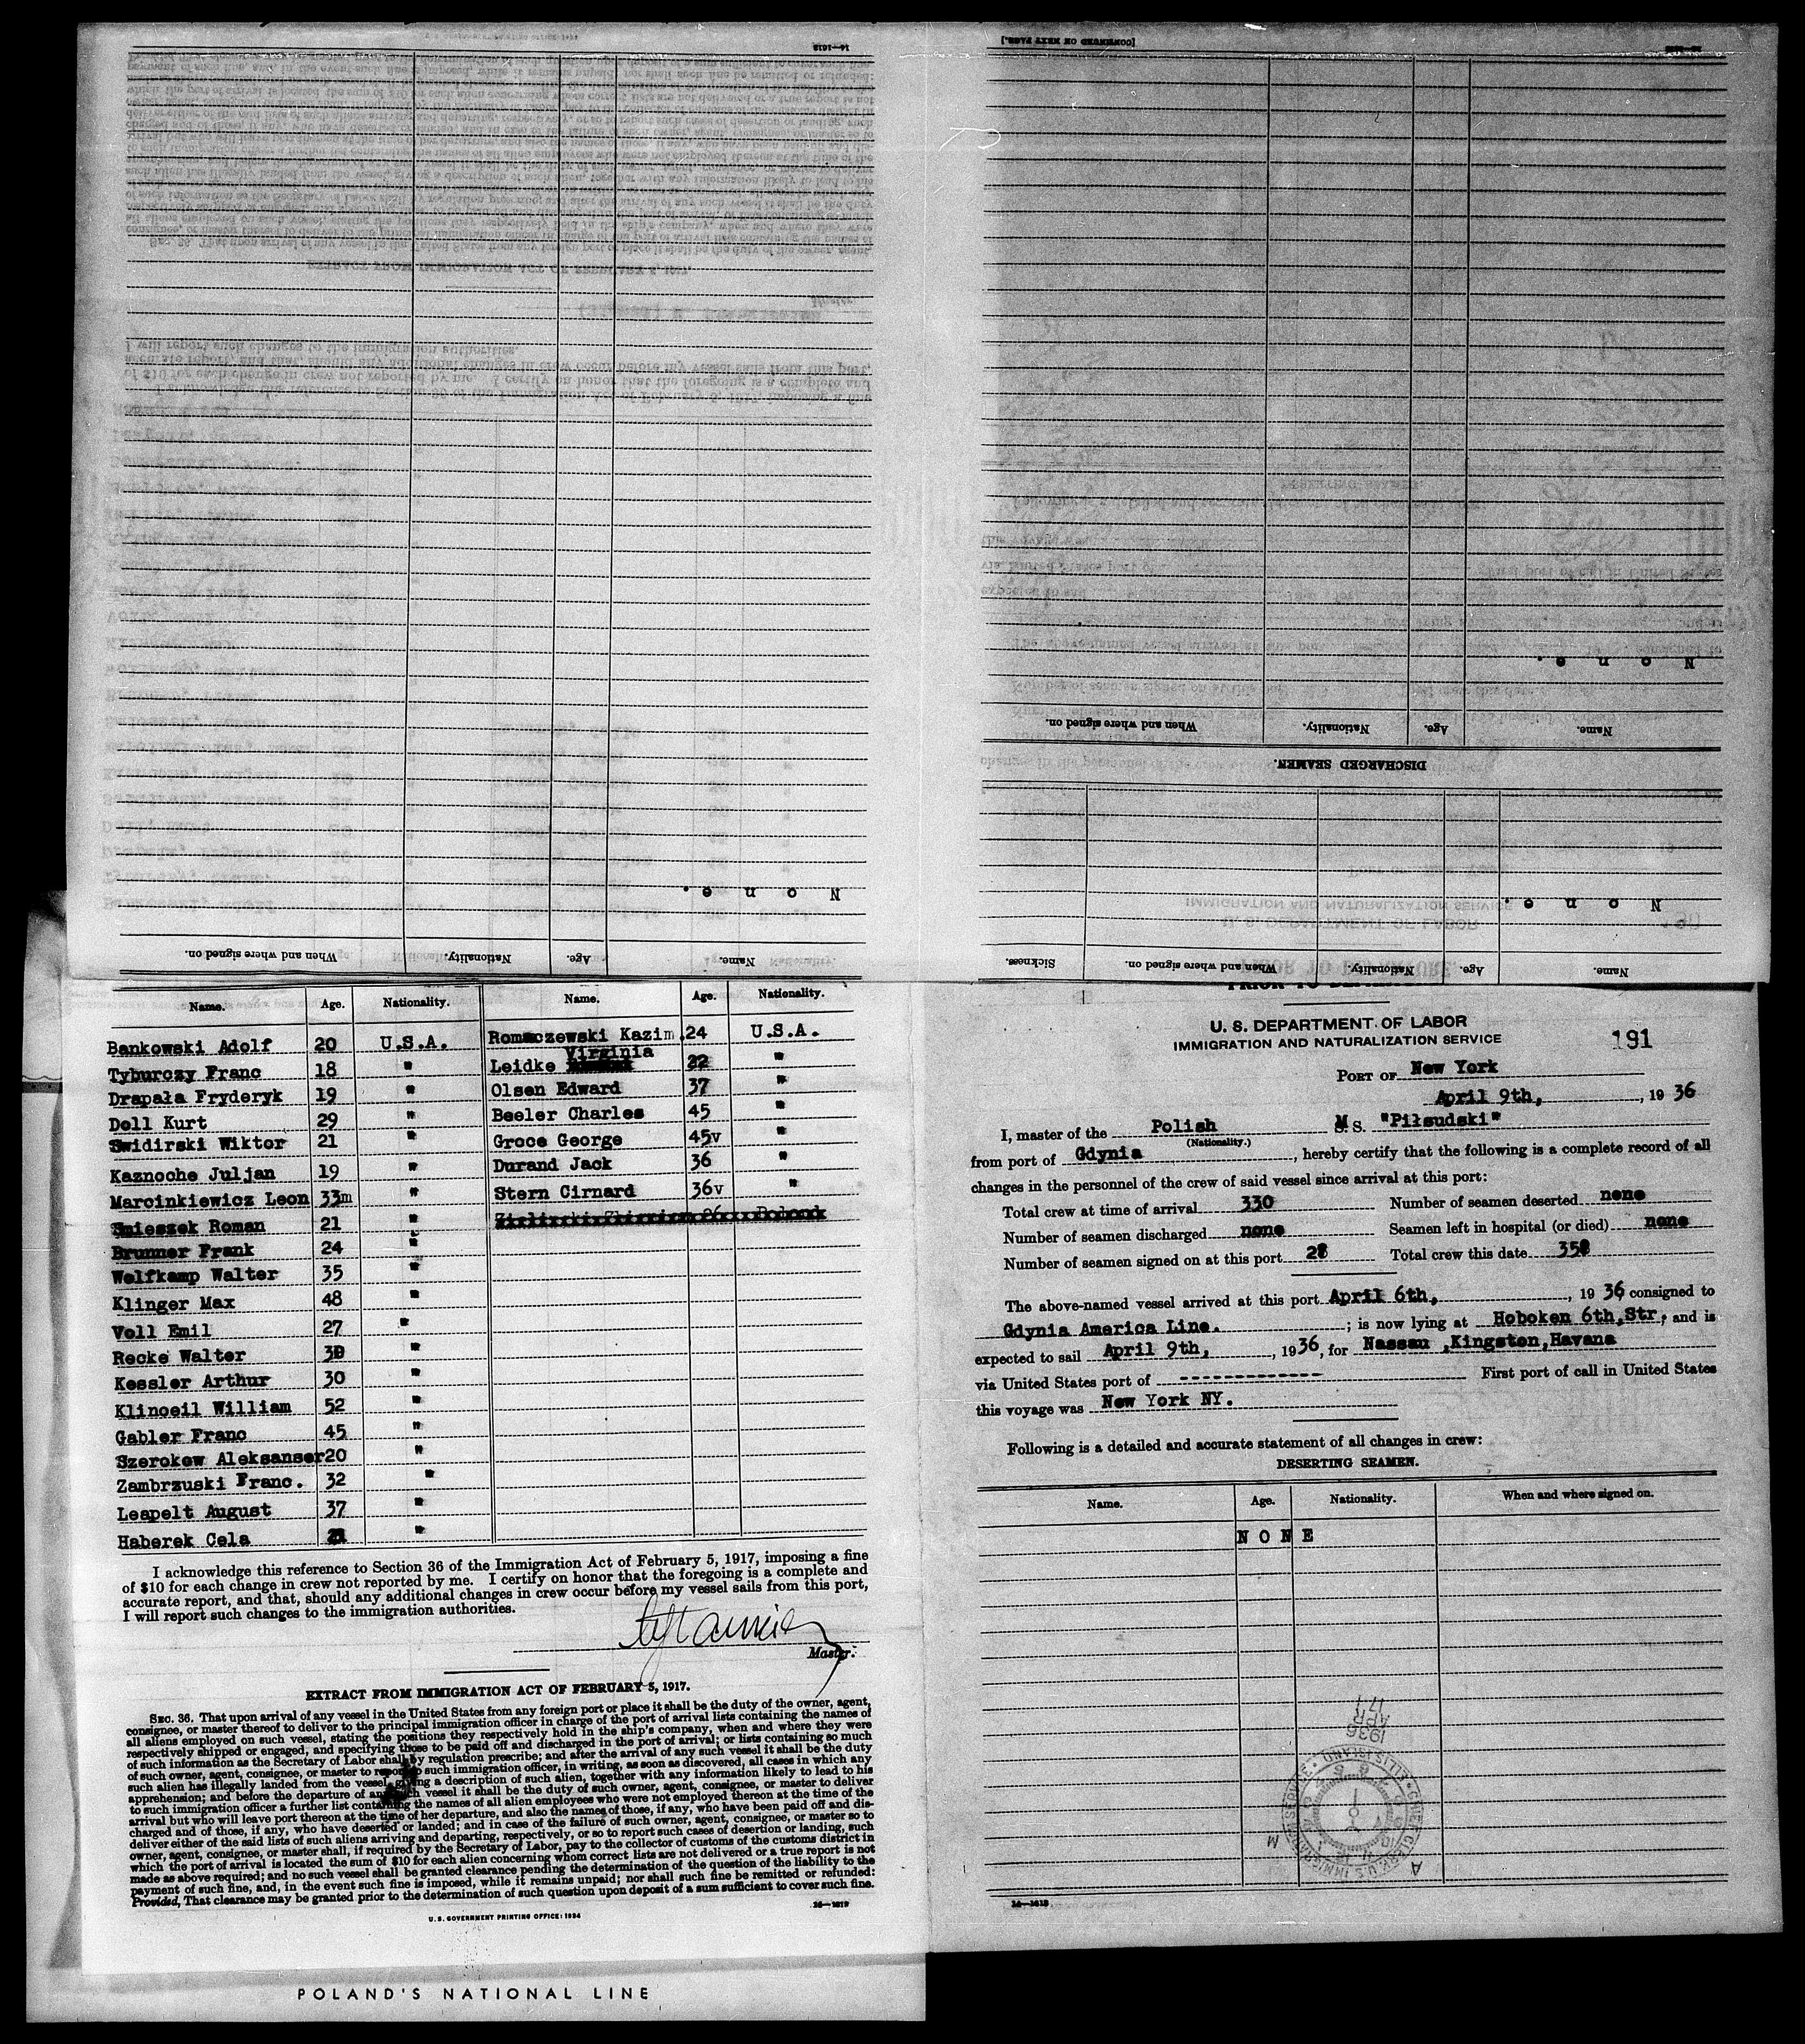 [CONTINUED ON NEXT PAGE.]
None.
When and where signed on. Nationality. Age. Name.
DISCHARGED SEAMEN.
None.
None.
When and where signed on. Nationality. Age. Name.
Sickness. When and where signed on. Nationality. Age. Name.
Name. Age. Nationality. Name. Age. Nationality.
Bankowski Adolf 20 U.S.A. Romaczewski Kazim. 24 U.S.A.
Virginia
Tyburczy Franc 18 " Leidke 22 "
Drapała Fryderyk 19 " Olsen Edward 37 "
Doll Kurt 29 " Beeler Charles 45 "
Swidirski Wiktor 21 " Groce George 45v "
Kaznoche Juljan 19 " Durand Jack 36 "
Marcinkiewicz Leon 33m " Stern Cirnard 36v "
Smieszek Roman 21 "
Brunner Frank 24 "
Wolfkamp Walter 35 "
Klinger Max 48 "
Voll Emil 27 "
Recke Walter "
Kessler Arthur 30 "
Klinoeil William 52 "
Gabler Franc 45 "
Szerokow Aleksanser 20 "
Zambrzuski Franc. 32 "
Leapelt August 37 "
Haberek Cela "
I acknowledge this reference to Section 36 of the Immigration Act of February 5, 1917, imposing a fine
of $10 for each change in crew not reported by me. I certify on honor that the foregoing is a complete and
accurate report, and that, should any additional changes in crew occur before my vessel sails from this port,
I will report such changes to the immigration authorities.
Master.
EXTRACT FROM IMMIGRATION ACT OF FEBRUARY 5, 1917.
SEC. 36. That upon arrival of any vessel in the United States from any foreign port or place it shall be the duty of the owner, agent,
consignee, or master thereof to deliver to the principal immigration officer in charge of the port of arrival lists containing the names of
all aliens employed on such vessel, stating the positions they respectively hold in the ship's company, when and where they were
respectively shipped or engaged, and specifying those to be paid off and discharged in the port of arrival; or lists containing so much
of such information as the Secretary of Labor shall by regulation prescribe; and after the arrival of any such vessel it shall be the duty
of such owner, agent, consignee, or master to report to such immigration officer, in writing, as soon as discovered, all cases in which any
such alien has illegally landed from the vessel, giving a description of such alien, together with any information likely to lead to his
apprehension; and before the departure of any such vessel it shall be the duty of such owner, agent, consignee, or master to deliver
to such immigration officer a further list containing the names of all alien employees who were not employed thereon at the time of the
arrival but who will leave port thereon at the time of her departure, and also the names of those, if any, who have been paid off and dis-
charged and of those, if any, who have deserted or landed; and in case of the failure of such owner, agent, consignee, or master so to
deliver either of the said lists of such aliens arriving and departing, respectively, or so to report such cases of desertion or landing, such
owner, agent, consignee, or master shall, if required by the Secretary of Labor, pay to the collector of customs of the customs district in
which the port of arrival is located the sum of $10 for each alien concerning whom correct lists are not delivered or a true report is not
made as above required; and no such vessel shall be granted clearance pending the determination of the question of the liability to the
payment of such fine, and, in the event such fine is imposed, while it remains unpaid; nor shall such fine be remitted or refunded:
Provided, That clearance may be granted prior to the determination of such question upon deposit of a sum sufficient to cover such fine.
U. S. GOVERNMENT PRINTING OFFICE: 1934
POLAND'S NATIONAL LINE
U. S. DEPARTMENT OF LABOR
IMMIGRATION AND NATURALIZATION SERVICE
191
PORT OF New York
April 9th, , 19 36
I, master of the Polish M. S. "Piłsudski"
(Nationality.)
from port of Gdynia , hereby certify that the following is a complete record of all
changes in the personnel of the crew of said vessel since arrival at this port:
Total crew at time of arrival 330 Number of seamen deserted none
Number of seamen discharged none Seamen left in hospital (or died) none
Number of seamen signed on at this port Total crew this date
The above-named vessel arrived at this port April 6th, , 19 36 consigned to
Gdynia America Line. ; is now lying at Hoboken 6th,Str, and is
expected to sail April 9th, , 1936, for Nassau ,Kingston,Havana
via United States port of ------------- First port of call in United States
this voyage was New York NY.
Following is a detailed and accurate statement of all changes in crew:
DESERTING SEAMEN.
Name. Age. Nationality. When and where signed on.
NONE
1936
APR
17